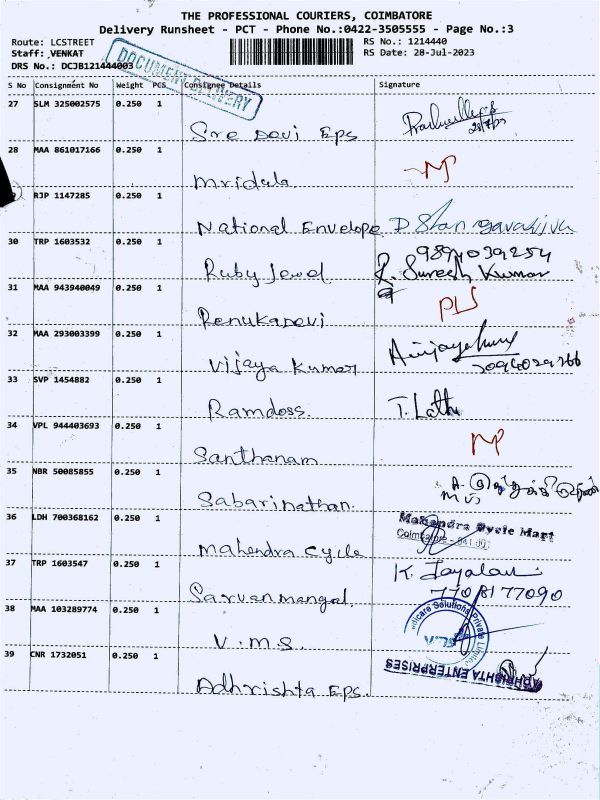 THE PROFESSIONAL COURIERS, COIMBATORE
Delivery Runsheet - PCT - Phone No.:0422-3505555 - Page No.:3
Route: LCSTREET RS No.: 1214440
Staff: VENKAT RS Date: 28-Jul-2023
DRS No.: DCJB121444003
DOCUMENT DELIVERY
S No Consignment No Weight PCS Consignee Details Signature
27 SLM 325002575 0.250 1
Sre Devi Eps
28 MAA 861017166 0.250 1
Mridula NP
RJP 1147285 0.250 1
National Envelope
30 TRP 1603532 0.250 1
9894039254
Ruby Jewel R. Suresh Kumar
31 MAA 943940049 0.250 1
Renukadevi
32 MAA 293003399 0.250 1
Vijaya Kumar
33 SVP 1454882 0.250 1
Ramdoss.
34 VPL 944403693 0.250 1
Santhanam NP
35 NBR 50085855 0.250 1
Sabarinathan.
36 LDH 700368162 0.250 1
Mahendra Cycle Mart
Mahendra Cycle
37 TRP 1603547 0.250 1
K. Jayalaxi
Sarvanmangal. 7708177090
38 MAA 103289774 0.250 1
V.M.S.
39 CNR 1732051 0.250 1
ADHRISHTA ENTERPRISES
Adhrishta Eps.